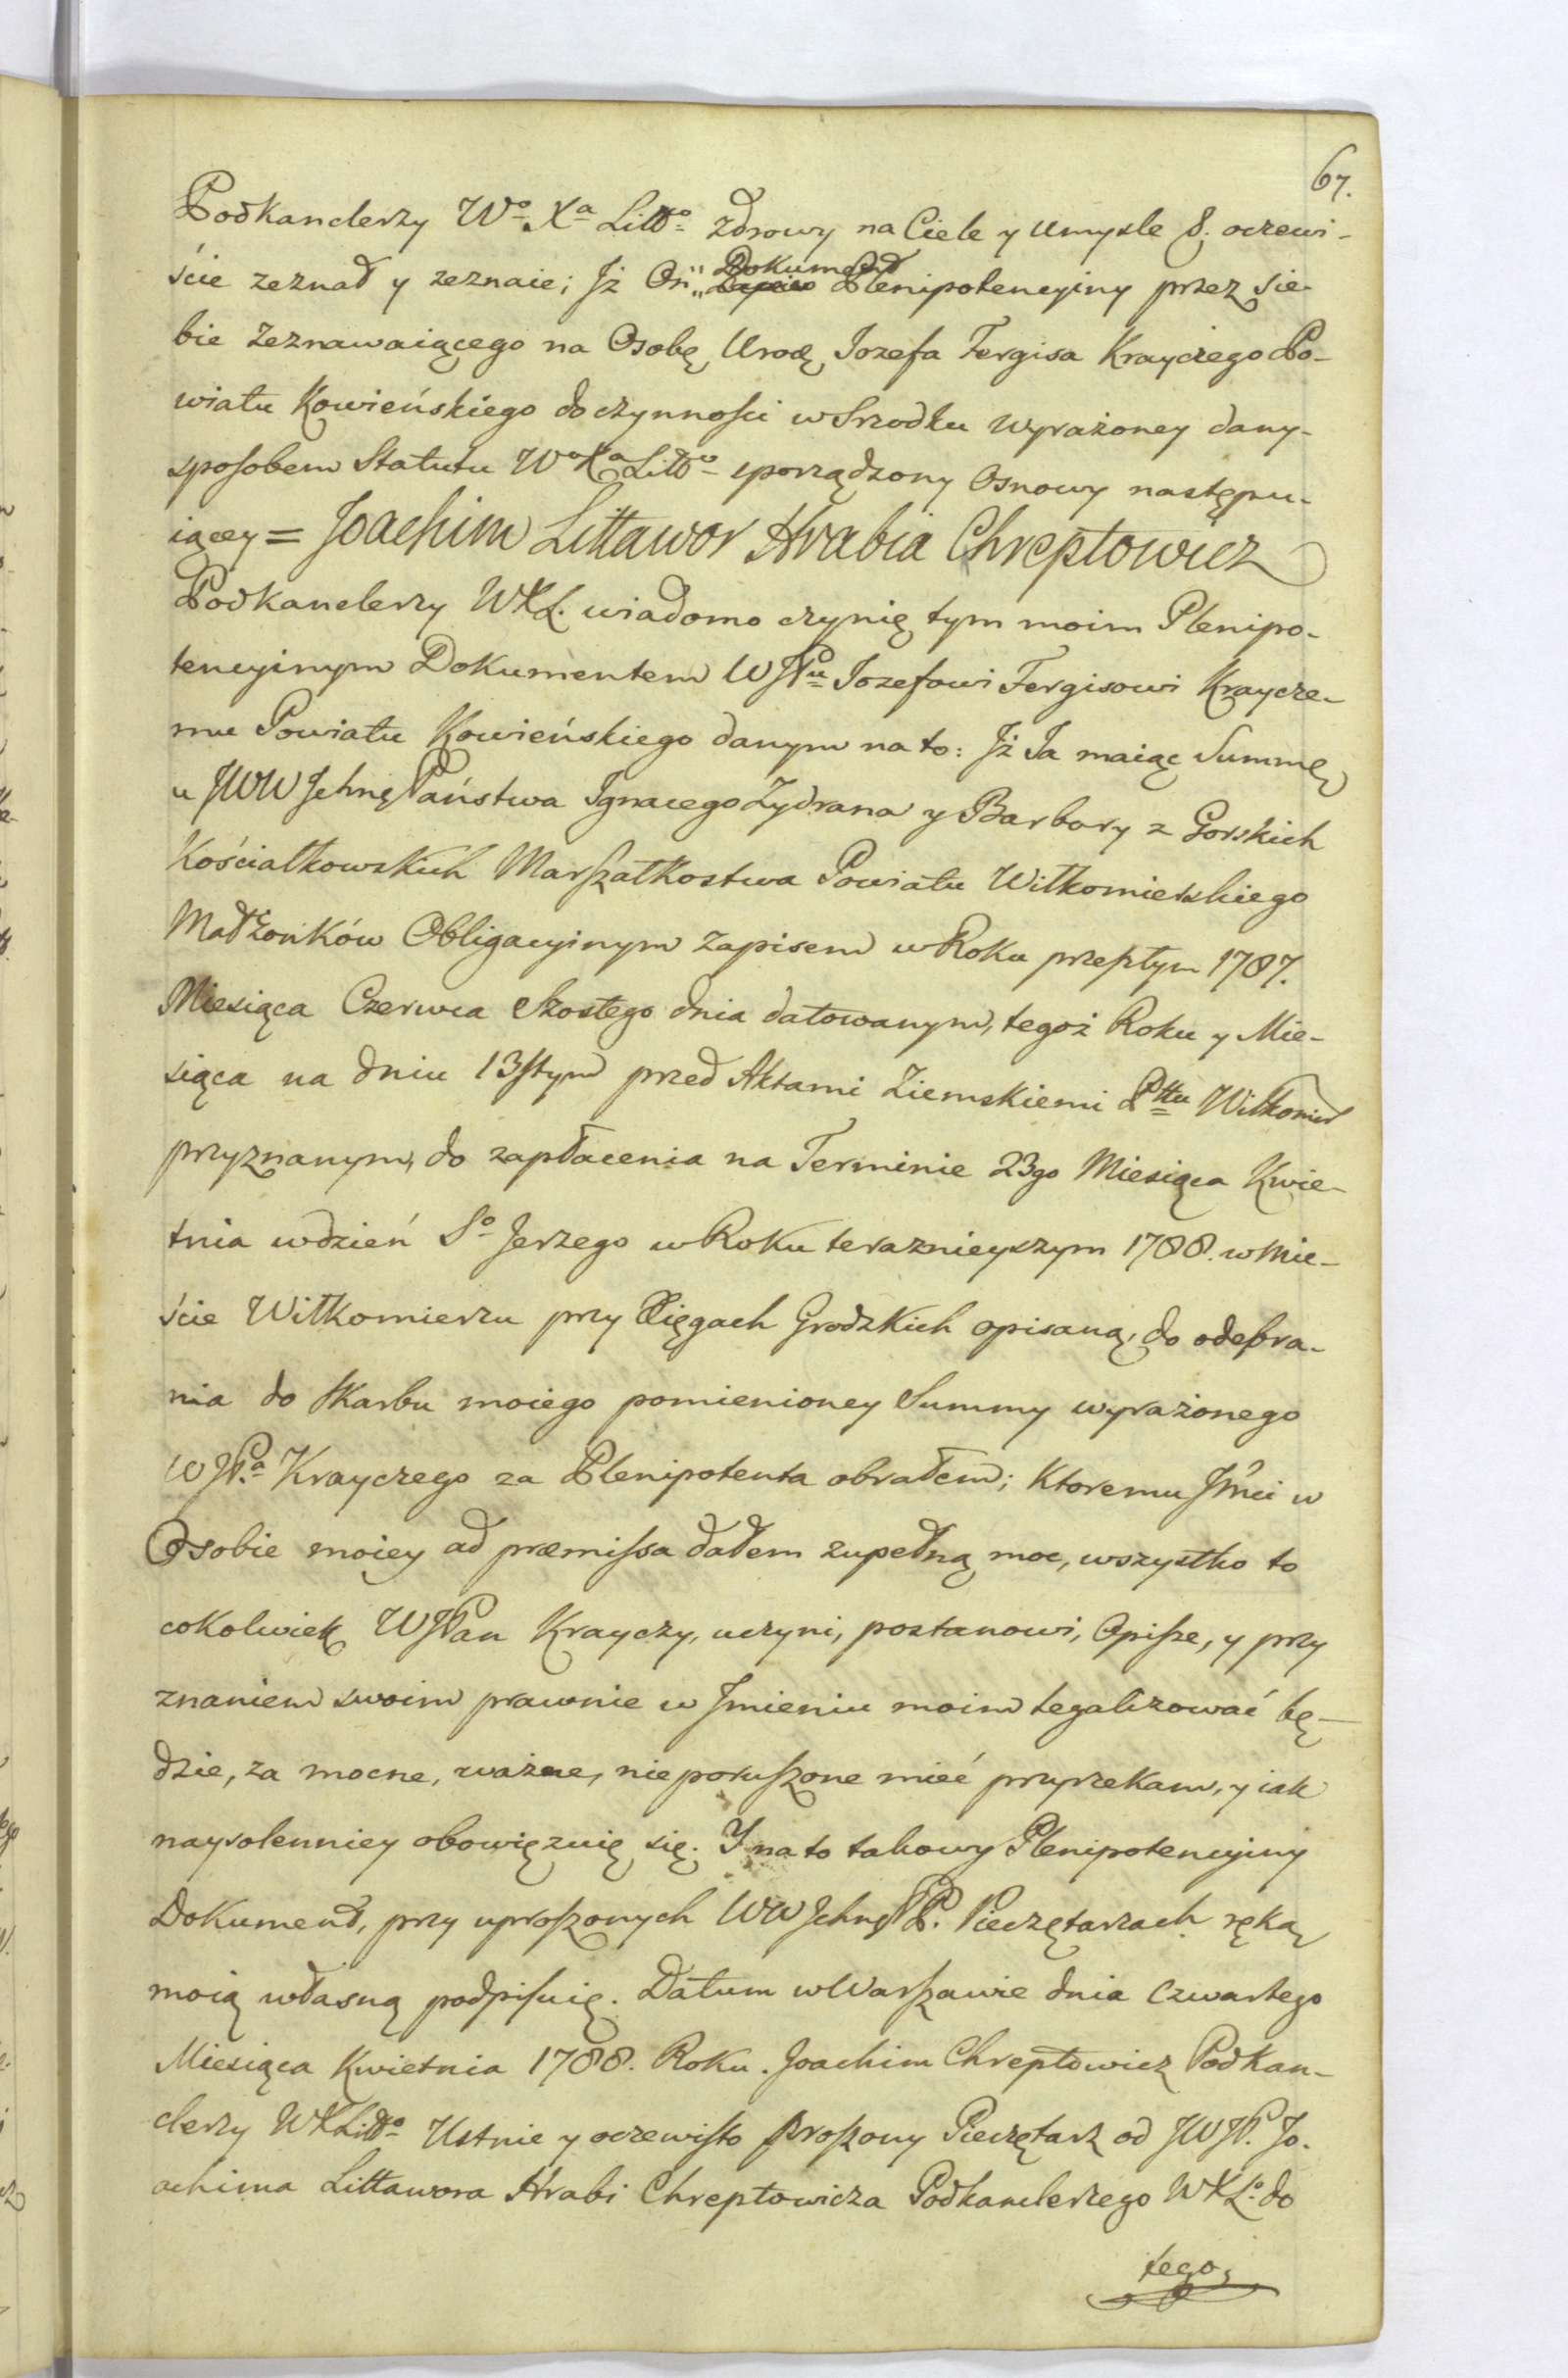 67.
Podkanclerzy Wo Xa Litto zdrowy na Ciele y Umysle &. oczewi-
ście zeznał y zeznaie; Jż On „ Dokument
Zapis Plenipotencyiny przez sie-
bie zeznawaiącego na Osobę Urodz Jozefa Fergisa Krayczego Po-
wiatu Kowieńskiego do czynności w Srzodku wyrażoney dany-
sposobem Statutu Wo Xa Litto sporządzony Osnowy następu-
iącey = Joachim Littawor Hrabia Chreptowicz
Podkanclerzy WXL. wiadomo czynię tym moim Plenipo-
tencyinym Dokumentem WJPu Jozefowi Fergisowi Kraycze-
mu Powiatu Kowieńskiego danym na to: Jż Ja maiąc Summę
u JWW Jchmę Państwa Jgnacego Zydrana y Barbary z Gorskich
Kościałkowskich Marszałkostwa Powiatu Wiłkomierskiego
Małżonków Obligacyinym zapisem w Roku przeszłym 1787.
Miesiąca Czerwca Szostego dnia datowanym, tegoż Roku y Mie-
siąca na dniu 13stym przed Aktami Ziemskiemi Pttu Wiłkomier
przyznanym, do zapłacenia na Terminie 23go Miesiąca Kwie-
tnia w dzień So Jerzego w Roku terazniejszym 1788. w Mie-
ście Wiłkomierzu przy Xięgach Grodzkich opisaną, do odebra-
nia do Skarbu moiego pomienioney Summy wyrażonego
WJPa Krayczego za Plenipotenta obrałem; Ktoremu Jmci w
Osobie moiey ad præmissa dałem zupełną moc, wszystko to
cokolwiek WJPan Krayczy, uczyni, postanowi, Opisze, y przy
znaniem swoim prawnie w Jmieniu moim legalizować bę-
dzie, za mocne, ważne, nieporuszone mieć przyrzekam, y iak
naysolenniey obowięzuię się. Y na to takowy Plenipotencyiny
Dokument, przy uproszonych WW Jchmę PP. Pieczętarzach ręką
moią własną podpisuię. Datum w Warszawie dnia Czwartego
Miesiąca Kwietnia 1788. Roku. Joachim Chreptowicz Podkan-
clerzy WXLitto Ustnie y oczewisto proszony Pieczętarz od JWJP. Jo-
achima Littawora Hrabi Chreptowicza Podkanclerzego WXLo do
tego,